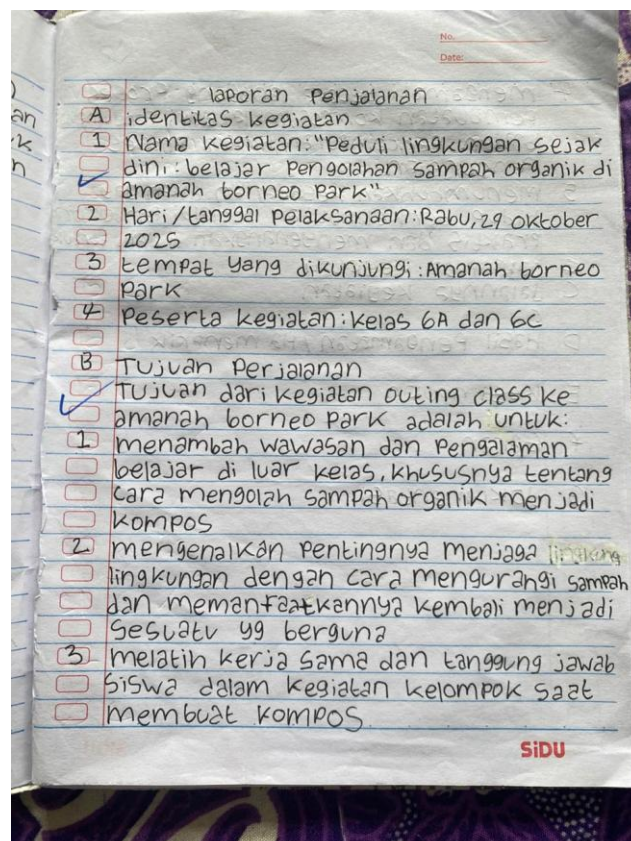 No.
Date:
laporan Penjalanan
A identitas kegiatan
1 Nama kegiatan: "Peduli lingkungan sejak
dini: belajar Pengolahan sampah organik di
amanah borneo Park"
2 Hari/tanggal Pelaksanaan: Rabu, 29 oktober
2025
3 tempat yang dikunjungi: Amanah borneo
Park
4 Peserta kegiatan: kelas 6A dan 6C
B Tujuan Perjalanan
Tujuan dari kegiatan outing class ke
amanah borneo Park adalah untuk:
1 menambah wawasan dan Pengalaman
belajar di luar kelas, khususnya tentang
cara mengolah sampah organik menjadi
kompos
2 mengenalkan Pentingnya menjaga
lingkungan dengan cara mengurangi sampah
dan memanfaatkannya kembali menjadi
sesuatu yg berguna
3 melatih kerja sama dan tanggung jawab
siswa dalam kegiatan kelompok saat
membuat kompos
SiDU